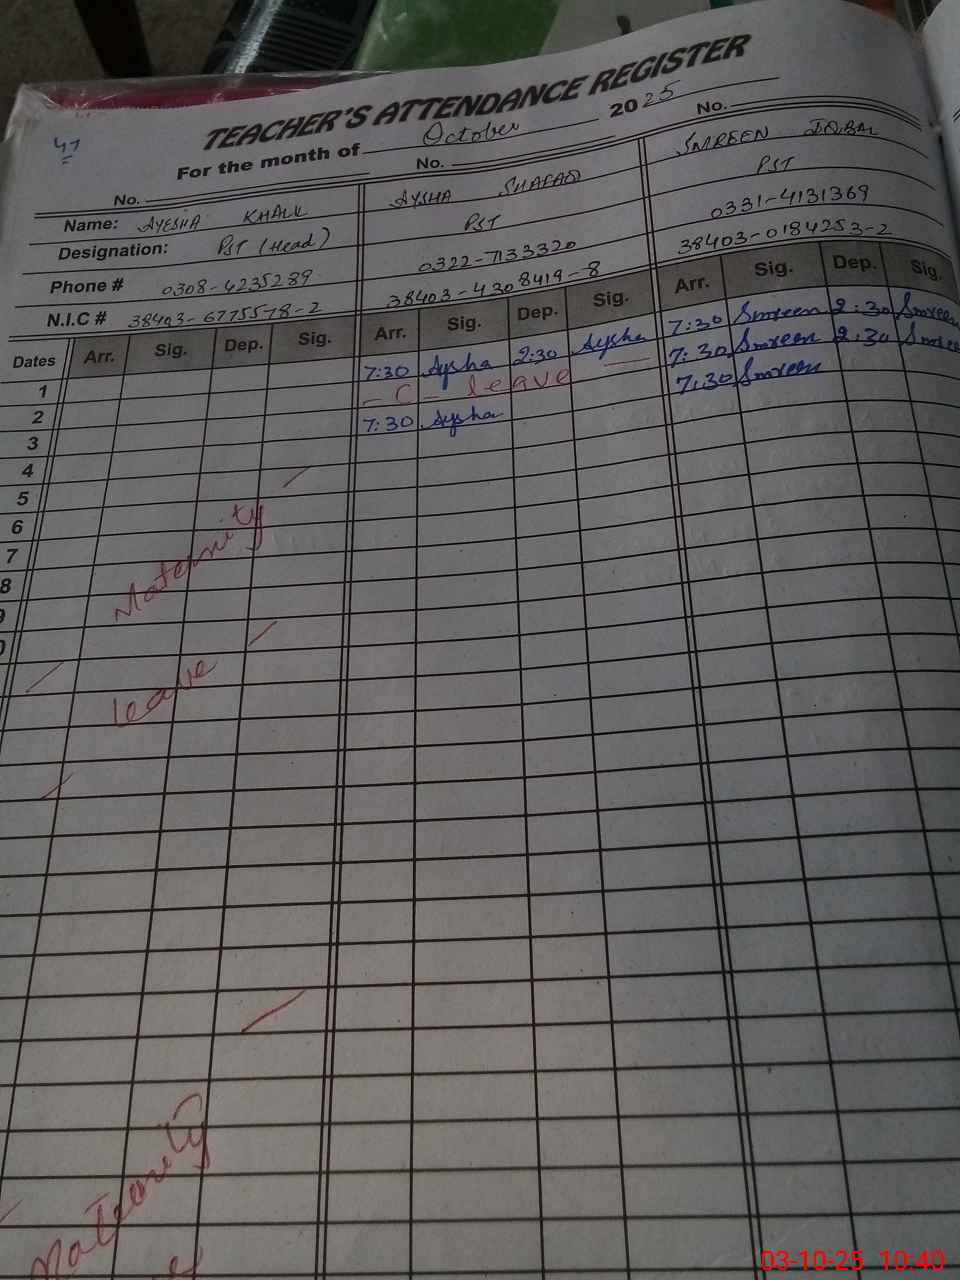 47
TEACHER'S ATTENDANCE REGISTER
For the month of October 2025
No. No. No.
Name: AYESHA KHALIL AYSHA SHAFAQ SMREEN IQBAL
Designation: PST (Head) PST PST
Phone # 0308-4235289 0322-7133320 0331-4131369
N.I.C # 38403-6775578-2 38403-4308419-8 38403-0184253-2
Dates Arr. Sig. Dep. Sig. Arr. Sig. Dep. Sig. Arr. Sig. Dep. Sig.
1 7:30 Aysha 2:30 Aysha 7:30 Smreen 2:30 Smreen
2 - C - leave 7:30 Smreen 2:30 Smreen
3 7:30 Aysha 7:30 Smreen
4
5
6
7
8
Maternity
leave
Maternity
03-10-25 10:40